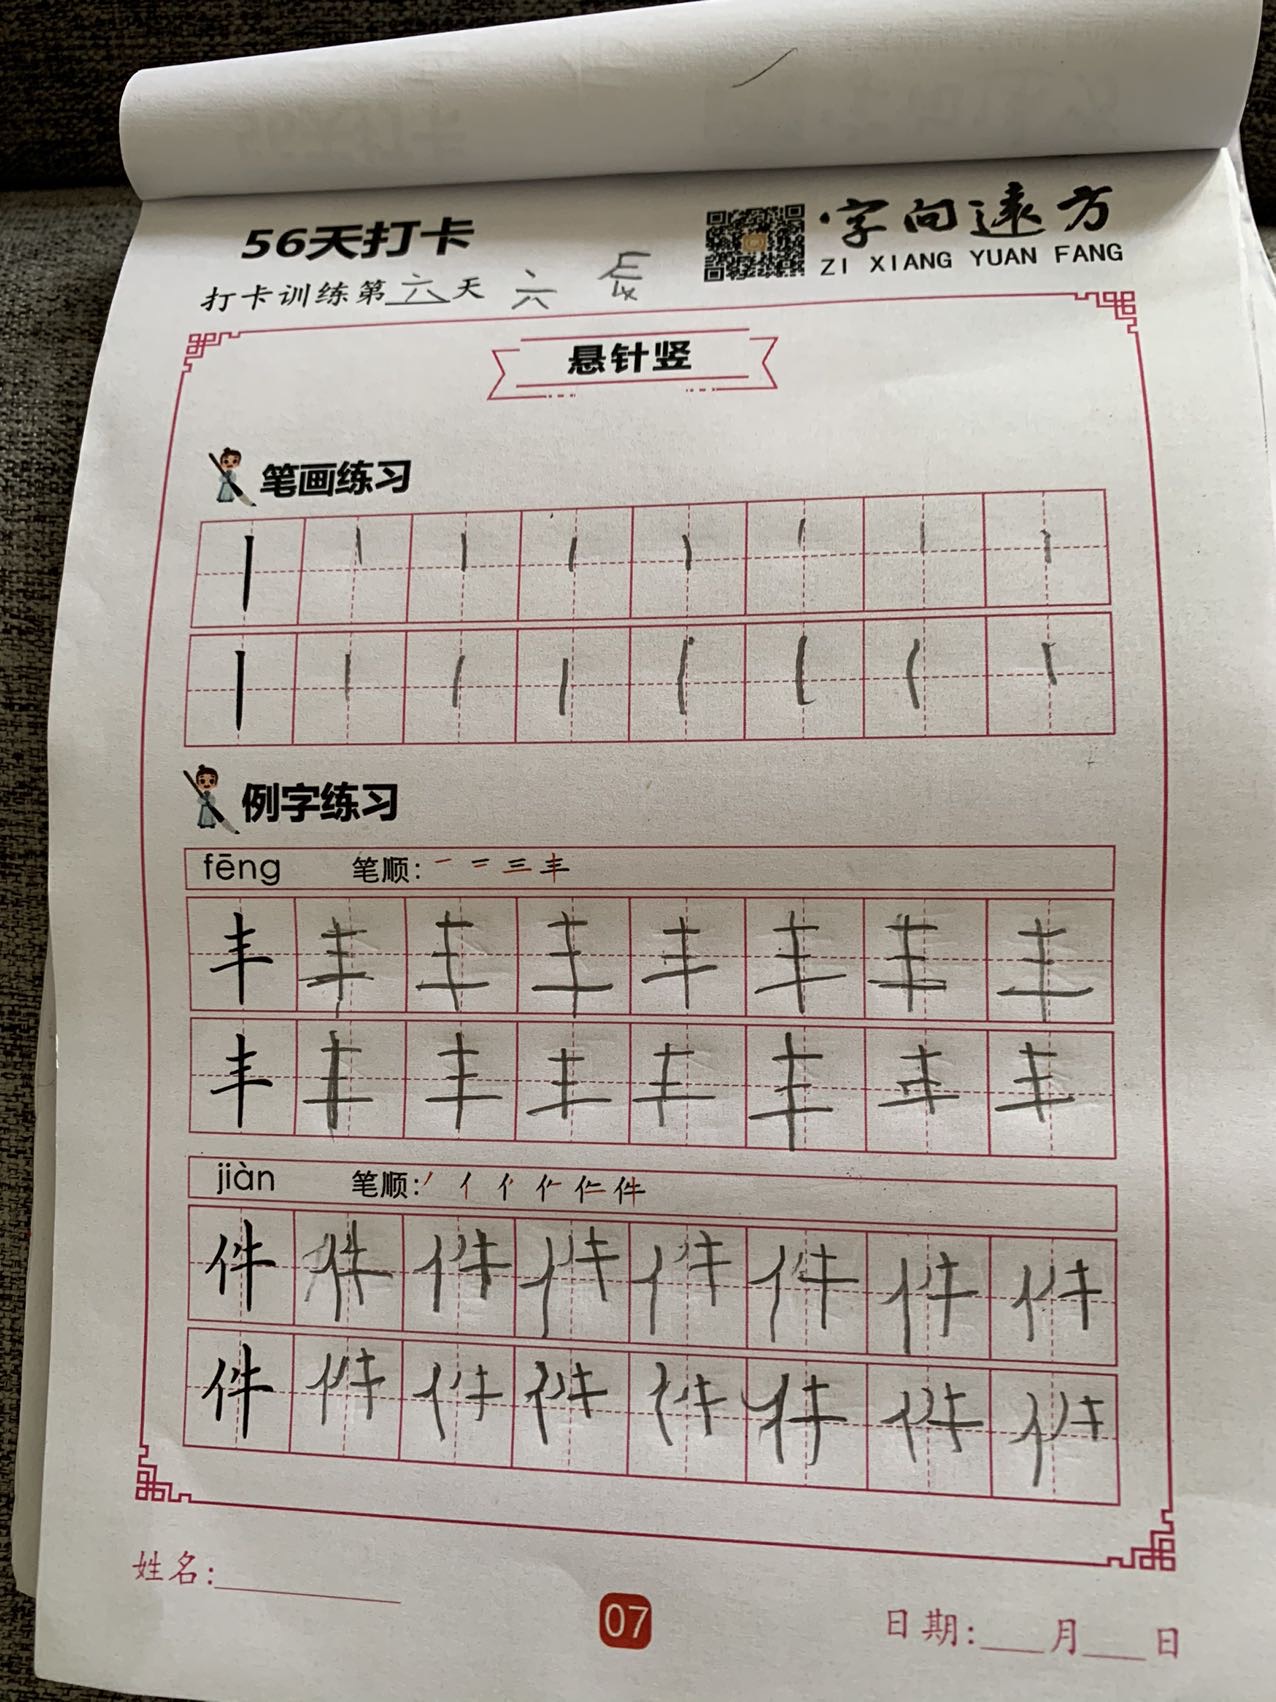 56天打卡
字向远方
ZI XIANG YUAN FANG
打卡训练第六天 六
悬针竖
笔画练习
丨 丨 丨 丨 丨 丨 丨 丨
丨 丨 丨 丨 丨 丨 丨 丨
例字练习
fēng 笔顺: 一 二 三 丰
丰 丰 丰 丰 丰 丰 丰 丰
丰 丰 丰 丰 丰 丰 丰 丰
jiàn 笔顺: 件
件 件 件 件 件 件 件 件
件 件 件 件 件 件 件 件
姓名:
07
日期: 月 日